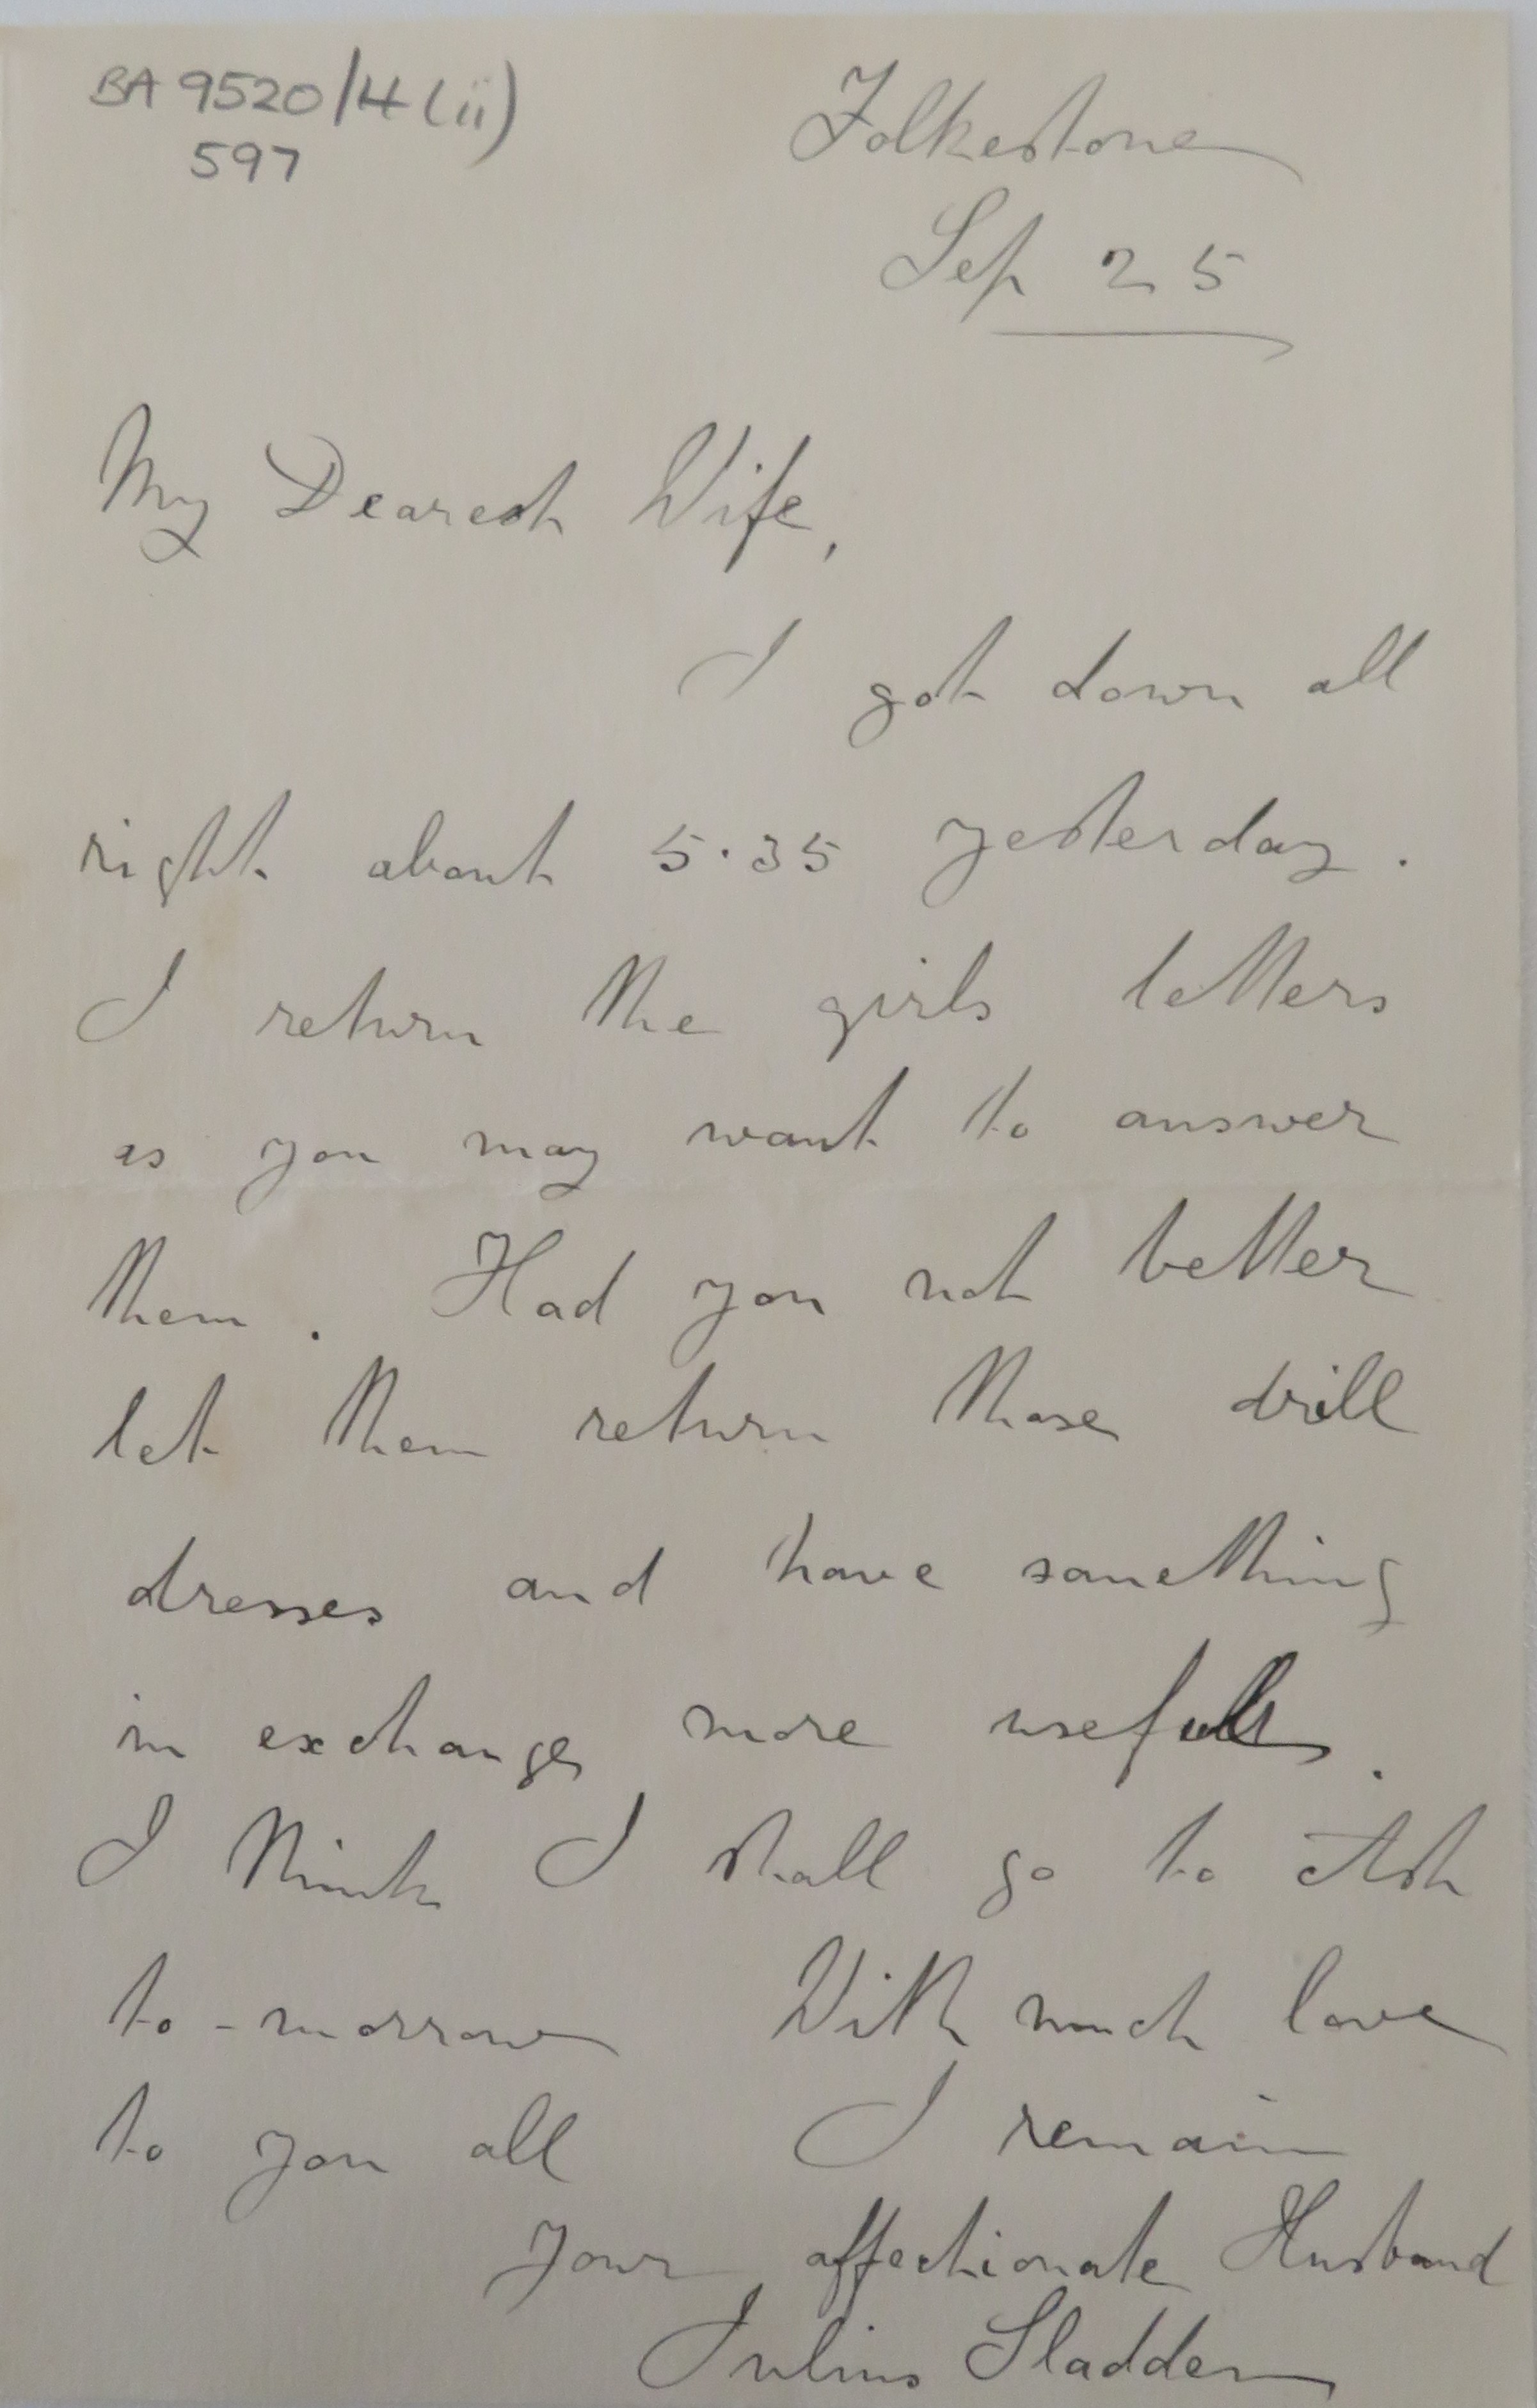 BA 9520/4(ii)
597
Folkestone
Sep 25
My Dearest Wife,
I got down all
right about 5.35 yesterday.
I return the girls letters
as you may want to answer
them. Had you not better
let them return those drill
dresses and have something
in exchange more useful.
I think I shall go to Ash
to-morrow With much love
to you all I remain
your affectionate Husband
Julius Sladden